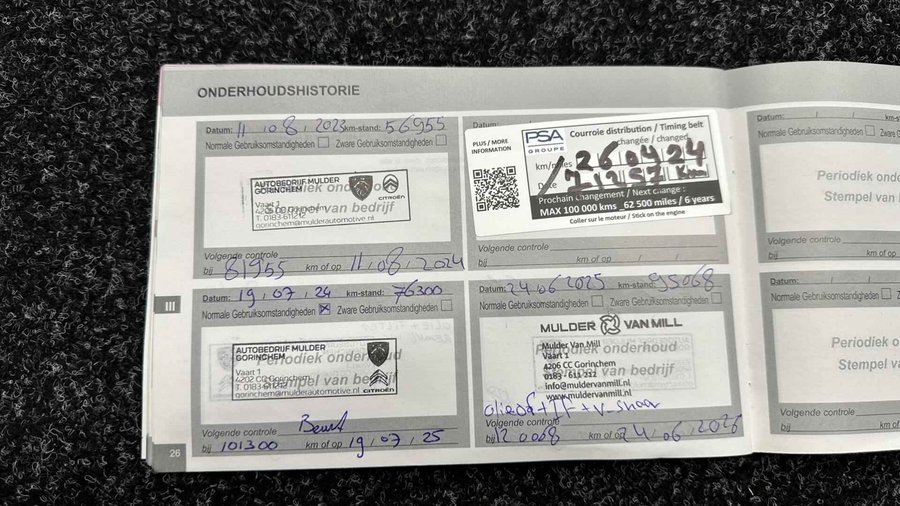 ONDERHOUDSHISTORIE
Datum: 11 / 08 / 2023 km-stand: 56955
Normale Gebruiksomstandigheden Zware Gebruiksomstandigheden
AUTOBEDRIJF MULDER
GORINCHEM
Vaart 1
4202 CC Gorinchem
T. 0183-611212
gorinchem@mulderautomotive.nl
CITROËN
Periodiek onderhoud
Stempel van bedrijf
Volgende controle
bij 81955 km of op 11 / 08 / 2024
PLUS / MORE
INFORMATION
PSA
GROUPE
Courroie distribution / Timing belt
changée / changed
km/miles 26 04 24
Date 71957 km
Prochain changement / Next change :
MAX 100 000 kms 62 500 miles / 6 years
Coller sur le moteur / Stick on the engine
Volgende controle
bij km of op / /
Datum: 19 / 07 / 24 km-stand: 76300
Normale Gebruiksomstandigheden Zware Gebruiksomstandigheden
AUTOBEDRIJF MULDER
GORINCHEM
Vaart 1
4202 CC Gorinchem
T. 0183-611212
gorinchem@mulderautomotive.nl
CITROËN
Periodiek onderhoud
Stempel van bedrijf
Volgende controle
bij 101300 km of op 19 / 07 / 25
Datum: 24 / 06 / 2025 km-stand: 95068
Normale Gebruiksomstandigheden Zware Gebruiksomstandigheden
MULDER VAN MILL
Mulder Van Mill
Vaart 1
4206 CC Gorinchem
0183 - 611 212
info@muldervanmill.nl
www.muldervanmill.nl
Periodiek onderhoud
Stempel van bedrijf
+ v-snaar
Volgende controle
bij 120068 km of op 24 / 06 / 2026
Datum:
Normale Gebruiksomstandigheden
Periodiek onderh
Stempel van bedr
Volgende controle
bij km of op
Datum:
Normale Gebruiksomstandigheden
Periodiek onderh
Stempel van bedr
Volgende controle
bij km of op
III
26